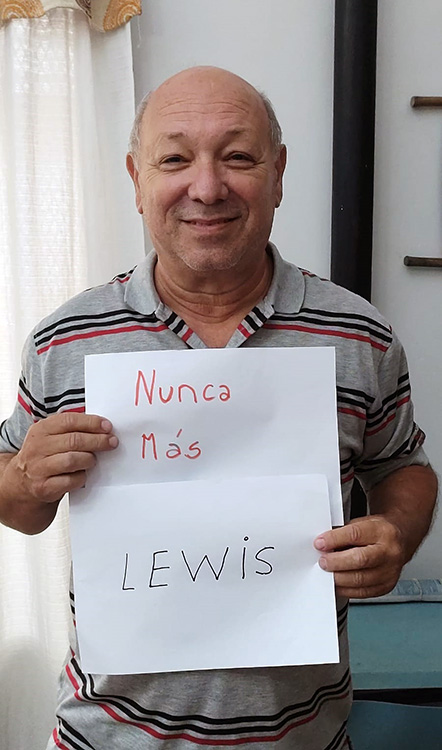 Nunca
Más
LEWiS